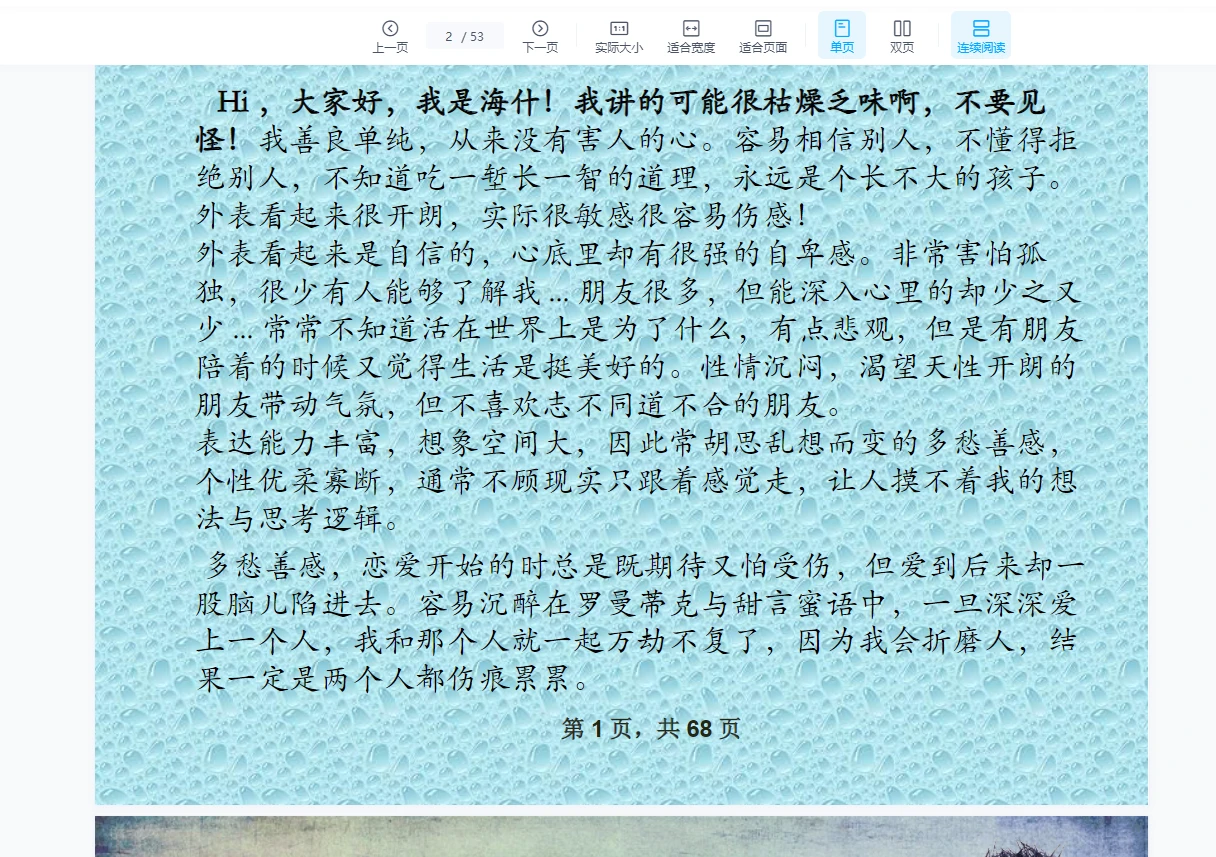 上一页
2 / 53
下一页
实际大小
适合宽度
适合页面
单页
双页
连续阅读
Hi ，大家好，我是海什！我讲的可能很枯燥乏味啊，不要见
怪！我善良单纯，从来没有害人的心。容易相信别人，不懂得拒
绝别人，不知道吃一堑长一智的道理，永远是个长不大的孩子。
外表看起来很开朗，实际很敏感很容易伤感！
外表看起来是自信的，心底里却有很强的自卑感。非常害怕孤
独，很少有人能够了解我 ... 朋友很多，但能深入心里的却少之又
少 ... 常常不知道活在世界上是为了什么，有点悲观，但是有朋友
陪着的时候又觉得生活是挺美好的。性情沉闷，渴望天性开朗的
朋友带动气氛，但不喜欢志不同道不合的朋友。
表达能力丰富，想象空间大，因此常胡思乱想而变的多愁善感，
个性优柔寡断，通常不顾现实只跟着感觉走，让人摸不着我的想
法与思考逻辑。
多愁善感，恋爱开始的时总是既期待又怕受伤，但爱到后来却一
股脑儿陷进去。容易沉醉在罗曼蒂克与甜言蜜语中，一旦深深爱
上一个人，我和那个人就一起万劫不复了，因为我会折磨人，结
果一定是两个人都伤痕累累。
第 1 页，共 68 页